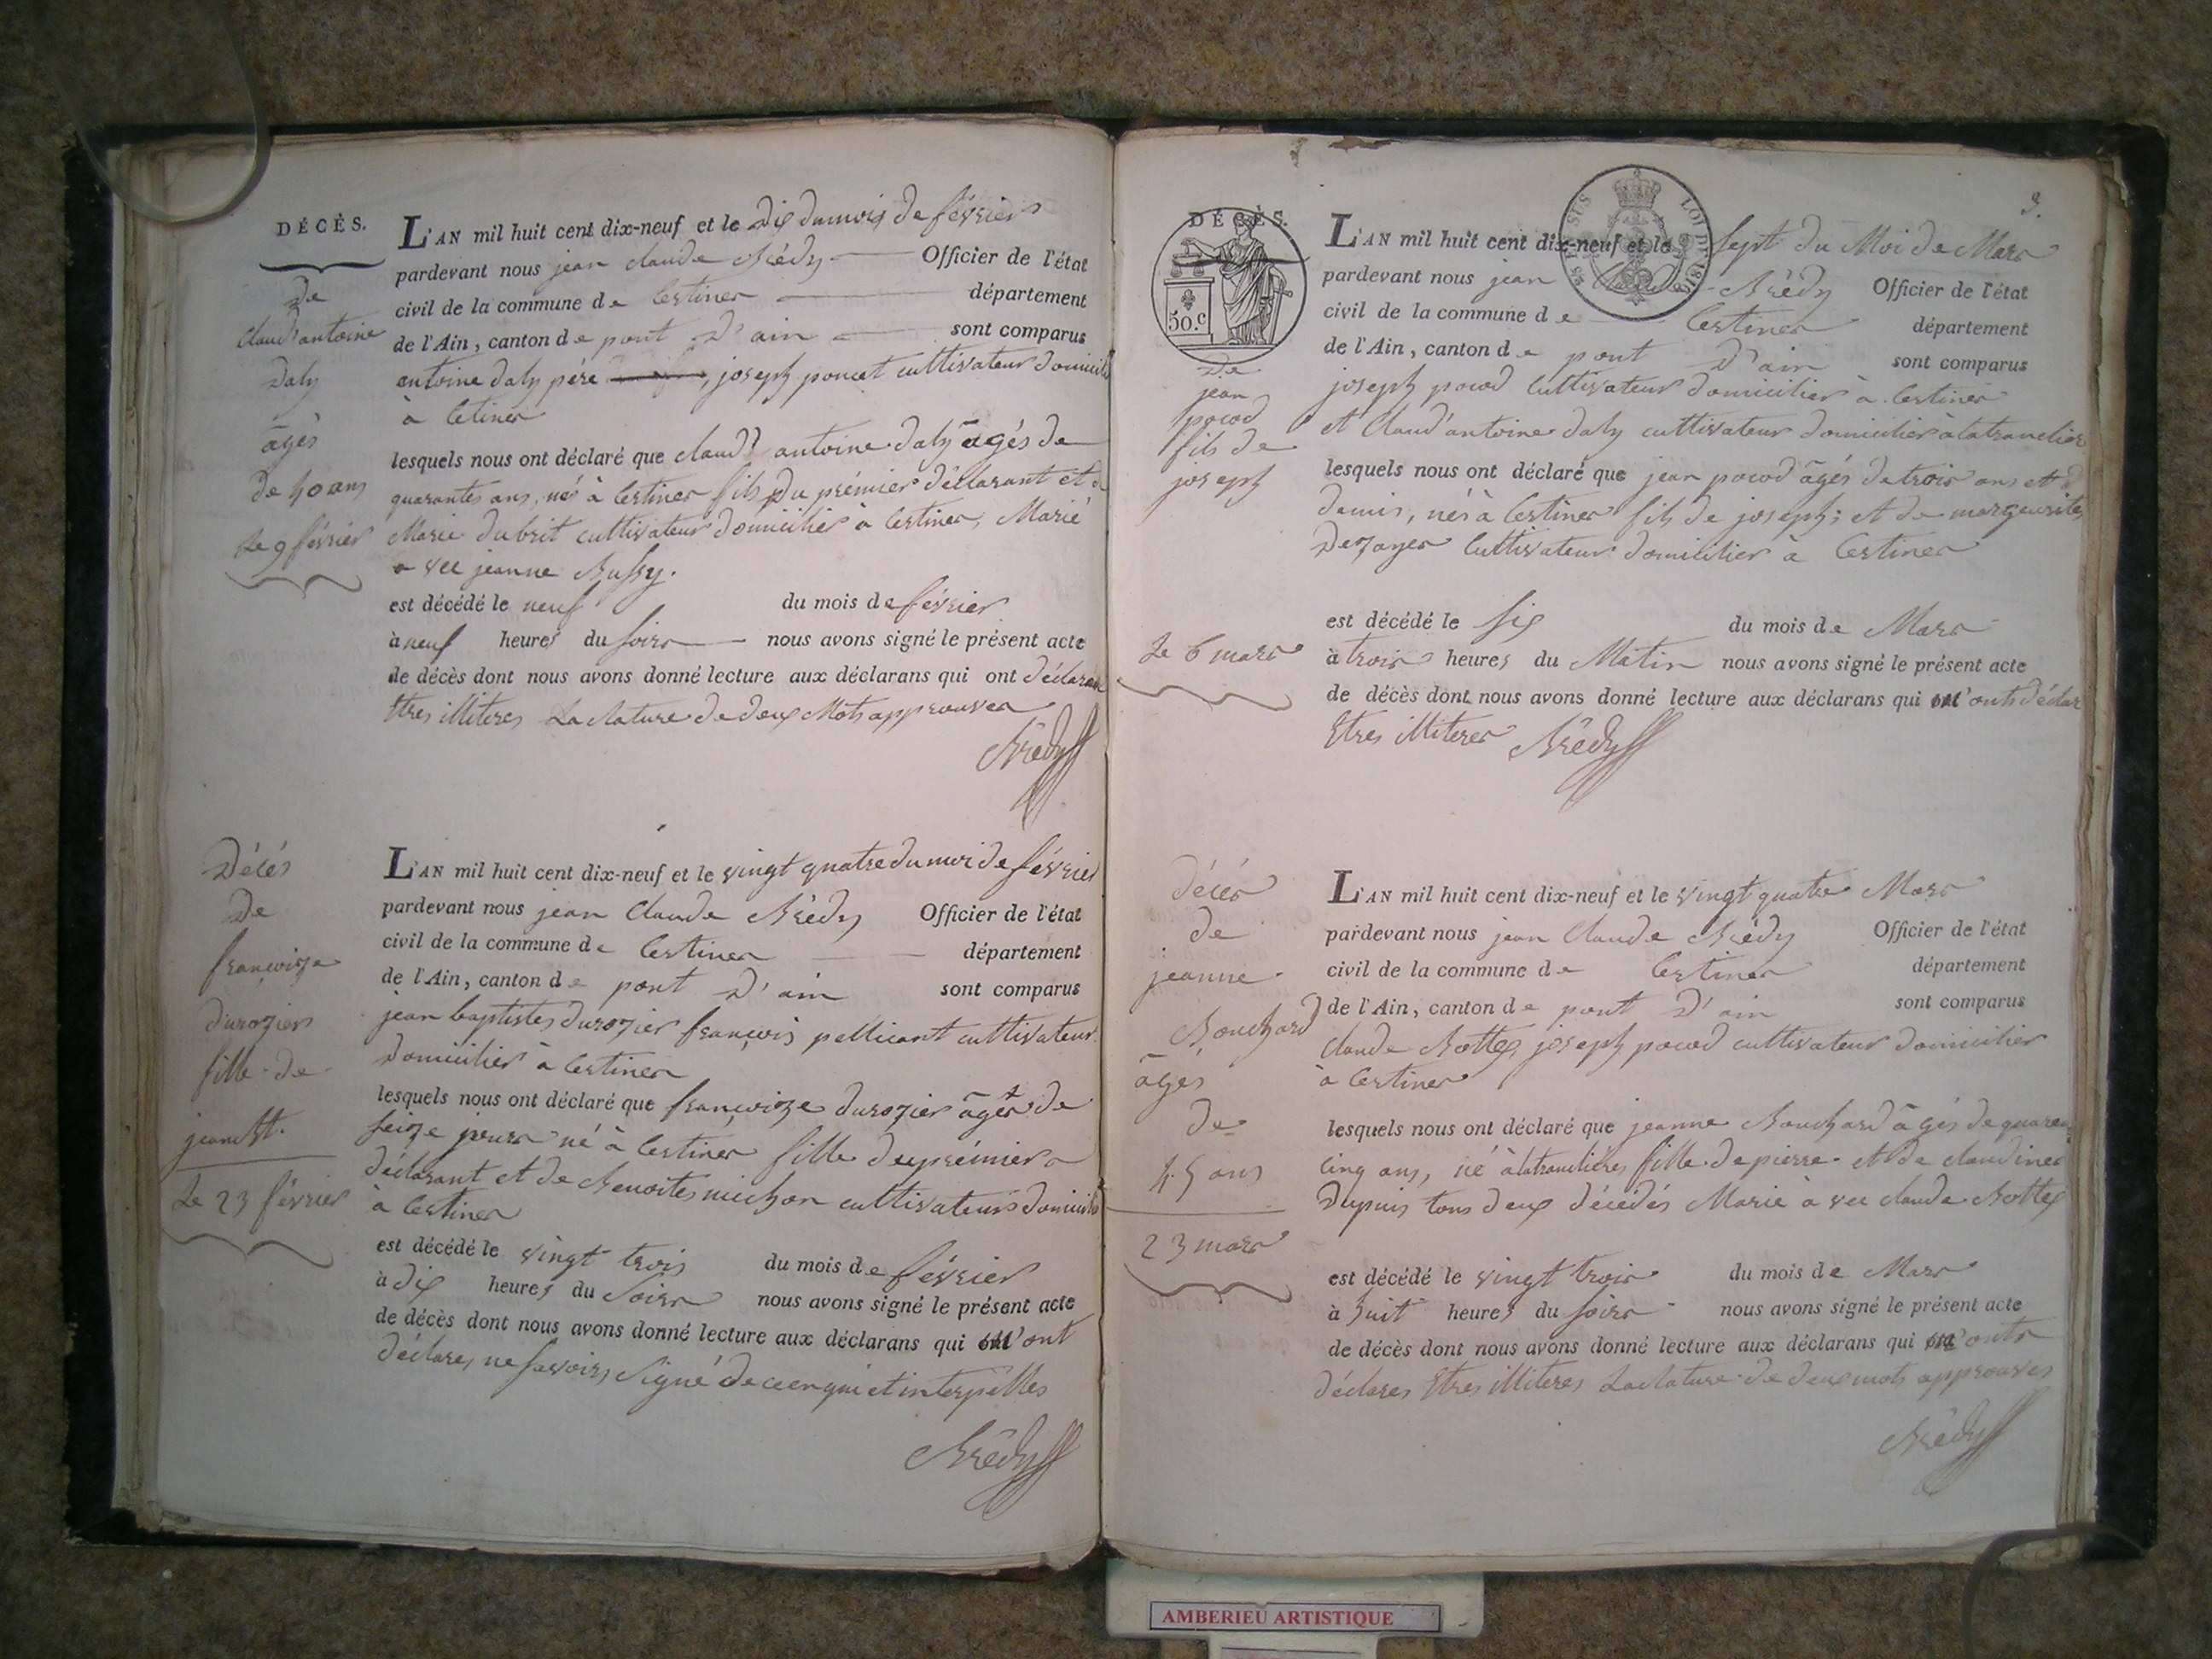 DÉCÈS.
De
Claud'antoine
Daly
âgés
de 40 ans
Le 9 février
L'AN mil huit cent dix-neuf et le Dix du mois de février
pardevant nous jean claude Brédy Officier de l'état
civil de la commune de Certines département
de l'Ain, canton de pont D'ain sont comparus
antoine Daly père joseph poncet cultivateur domicilié
à Cetines
lesquels nous ont déclaré que claud antoine Daly âgés de
quarantes ans, nés à Certines fils Du prémier déclarant et de
Marie Dubrit cultivateur Domicilier à Certines, Marié
a vec jeanne Bussy.
est décédé le neuf du mois de février
à neuf heures du soirs nous avons signé le présent acte
de décès dont nous avons donné lecture aux déclarans qui ont déclarés
Etres illiteres La Rature de deux Mots approuvés
Brédy
Décés
De
françoize
durozier
fille de
jean Bt.
Le 23 février
L'AN mil huit cent dix-neuf et le vingt quatre du moi de février
pardevant nous jean Claude Brédy Officier de l'état
civil de la commune de Certines département
de l'Ain, canton de pont D'ain sont comparus
jean baptistes durozier françois pellicant cultivateur
Domicilier à Certines
lesquels nous ont déclaré que françoize durozier âgés de
seize jours né à Certines fille du prémiers
déclarant et de Benoites michon cultivateurs domiciliés
à Certines
est décédé le vingt trois du mois de février
à dix heures du Soirs nous avons signé le présent acte
de décès dont nous avons donné lecture aux déclarans qui n'ont
déclares, ne savoirs Signé de ce enqui et interpelles
Brédy
3.
DÉCÈS.
50.c
De
jean
pocod
fils de
joseph
Le 6 mars
L'AN mil huit cent dix-neuf et le Sept du Moi de Mars
pardevant nous jean Claude Brédy Officier de l'état
civil de la commune de Certines département
de l'Ain, canton de pont D'ain sont comparus
joseph pocod Cultivateur Domicilier à Certines
et Claud'antoine daly cultivateur domicilier à la tranclière
lesquels nous ont déclaré que jean pocod âgés de trois ans et
demis, nés à Certines fils de joseph; et de marguerites
Dezayer Cultivateur domicilier à Certines
est décédé le six du mois de Mars
à trois heures du Matin nous avons signé le présent acte
de décès dont nous avons donné lecture aux déclarans qui m'onts déclar
Etres illiteres Brédy
décés
de
jeanne
Bouchard
âgés
de
45 ans
23 mars
L'AN mil huit cent dix-neuf et le vingt quatre Mars
pardevant nous jean Claude Brédy Officier de l'état
civil de la commune de Certines département
de l'Ain, canton de pont D'ain sont comparus
Claude Bottex joseph pocod cultivateur domicilier
à Certines
lesquels nous ont déclaré que jeanne Bouchard âgés de quaren
Cinq ans, né à la tranclières fille de pierre et de claudines
Dupuis tous deux décédés Marié à vec claude Bottex
est décédé le vingt trois du mois de Mars
à huit heures du soirs nous avons signé le présent acte
de décès dont nous avons donné lecture aux déclarans qui m'onts
déclares Etres illiteres La Rature de deux mots approuves
Brédy
AMBERIEU ARTISTIQUE